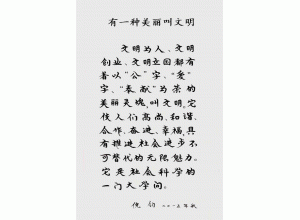 有一种美丽叫文明
文明为人、文明
创业、文明立国都有
着以“公”字、“爱”
字、“奉献”为荣的
美丽灵魂,叫文明,它
使人们高尚、和谐、
合作、奋进、幸福,具
有推进社会进步不
可替代的无限魅力。
它是社会科学的
一门大学问。